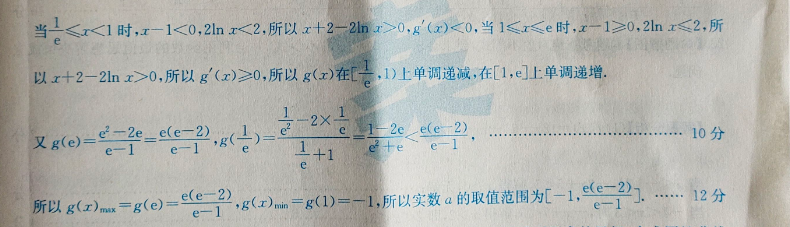 当\frac{1}{e}≤x<1时,x-1<0,2ln x<2,所以x+2-2ln x>0,g′(x)<0,当1≤x≤e时,x-1≥0,2ln x≤2,所
以x+2-2ln x>0,所以g′(x)≥0,所以g(x)在[\frac{1}{e},1)上单调递减,在[1,e]上单调递增.
又g(e)=\frac{e²-2e}{e-1}=\frac{e(e-2)}{e-1},g(\frac{1}{e})=\frac{\frac{1}{e²}-2×\frac{1}{e}}{\frac{1}{e}+1}=\frac{1-2e}{e²+e}<\frac{e(e-2)}{e-1}, …………………………………… 10分
所以g(x)_{max}=g(e)=\frac{e(e-2)}{e-1},g(x)_{min}=g(1)=-1,所以实数a的取值范围为[-1,\frac{e(e-2)}{e-1}]. …… 12分